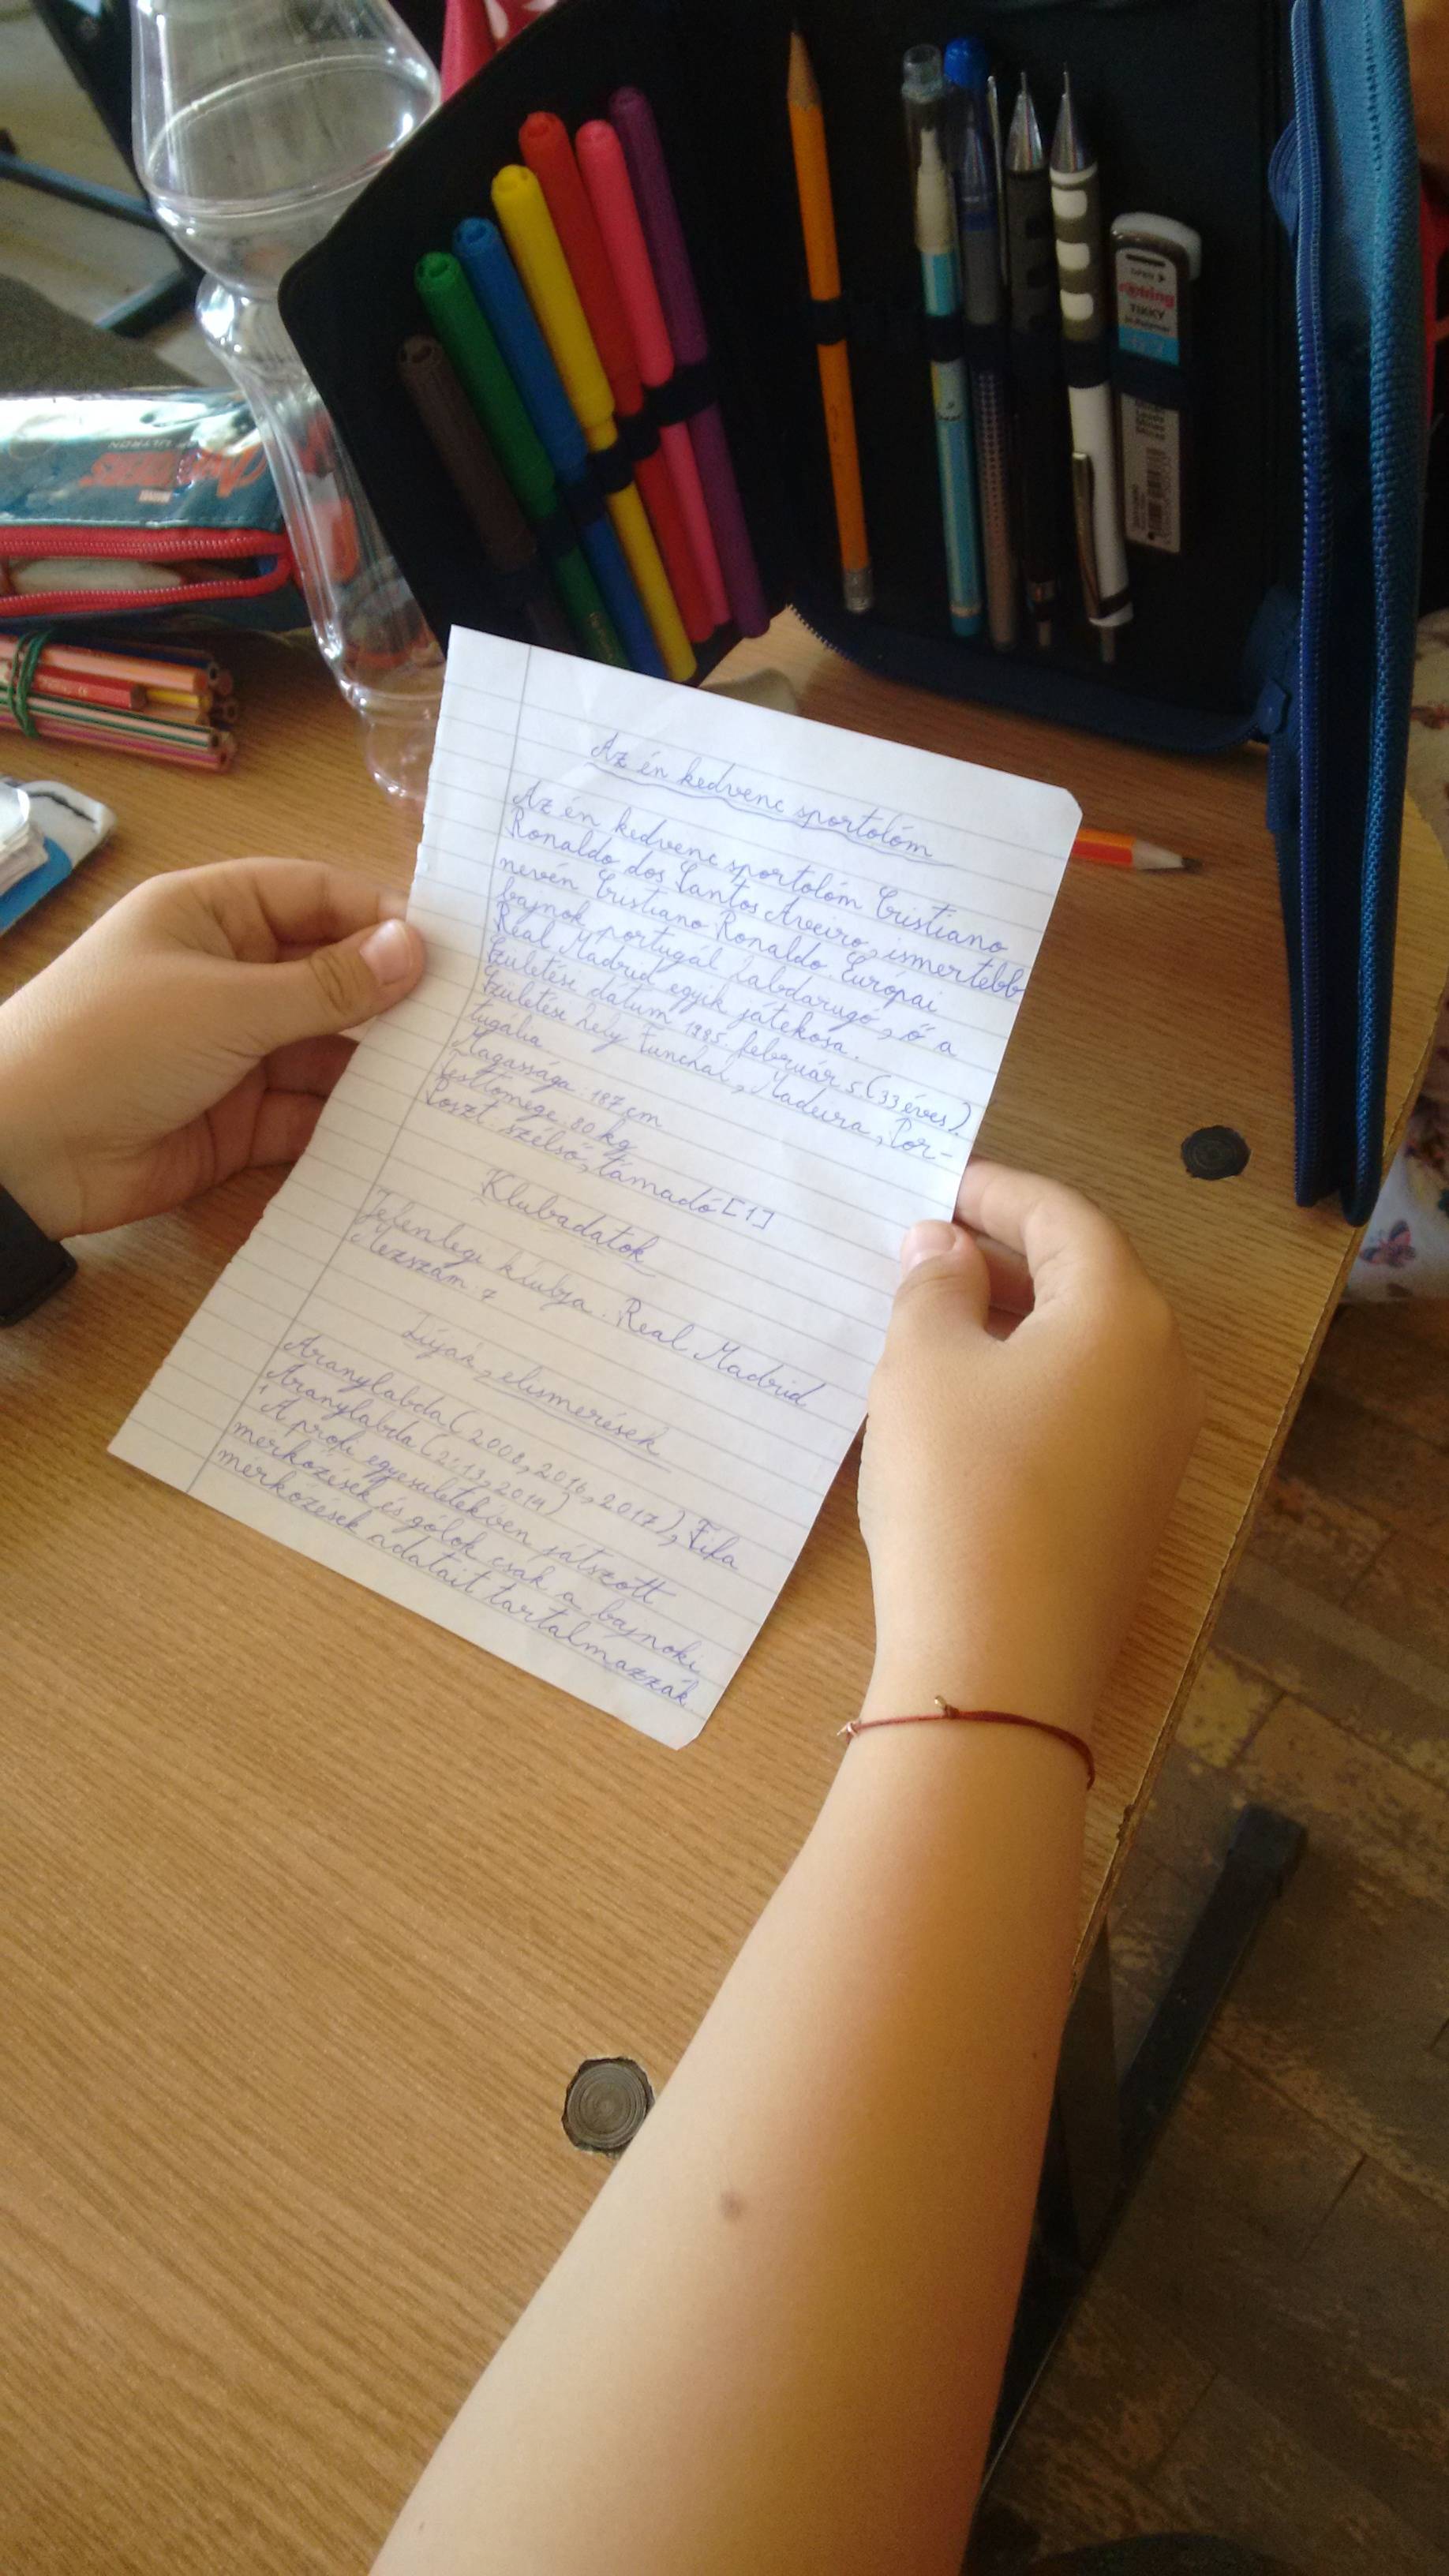 Az én kedvenc sportolóm
Az én kedvenc sportolóm Cristiano
Ronaldo dos Santos Aveiro, ismertebb
nevén Cristiano Ronaldo. Európai
bajnok, portugál labdarugó, ő a
Real Madrid egyik játekosa.
Születési dátum 1985. február 5. (33 éves).
Születési hely Funchal, Madeira, Por-
tugália
Magassága: 187 cm
Testtömege: 80 kg
Poszt: szélső, támadó [1]
Klubadatok
Jelenlegi klubja: Real Madrid
Mezszám: 7
Díjak, elismerések
Aranylabda (2008, 2016, 2017), Fifa
Aranylabda (2013, 2014)
1 A profi egyesületekben játszott
merkőzések és gólok csak a bajnoki
merkőzések adatait tartalmazzák.
rotring
TIKKY